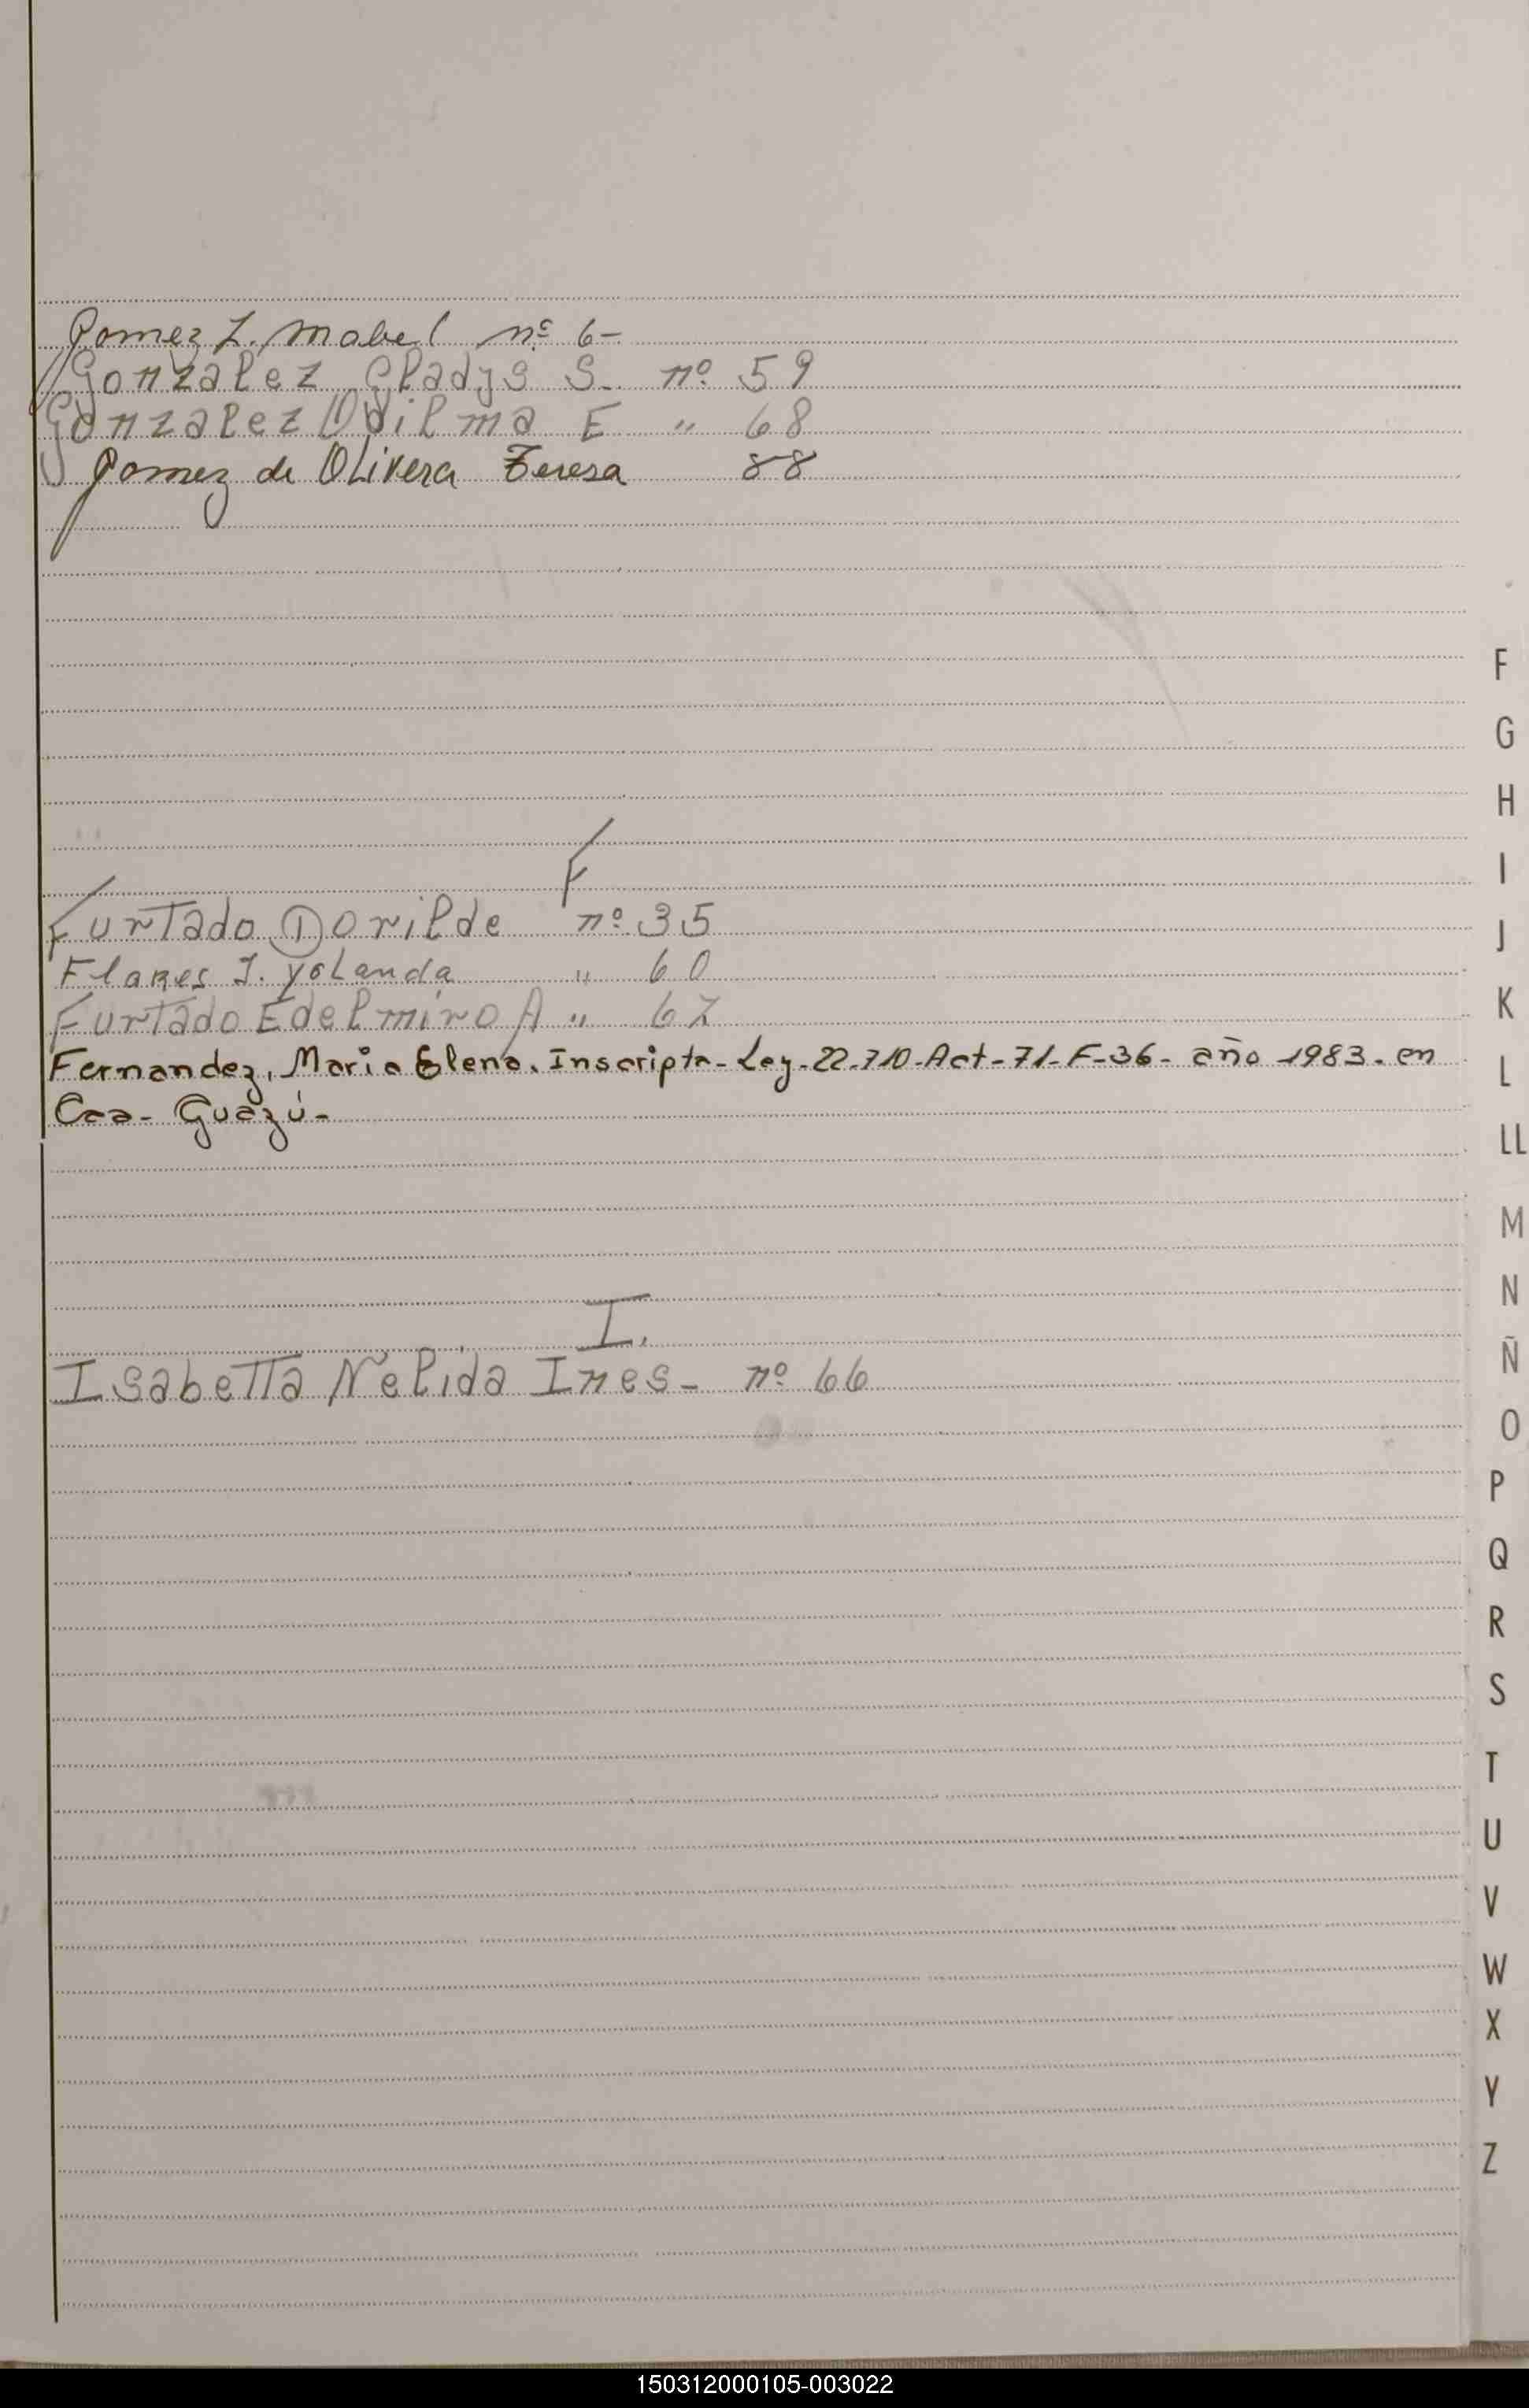 Gomez L. Mabel nº 6-
Gonzalez Gladys S. nº 59
Gonzalez Odilma E " 68
Gomez de Olivera Teresa 88
F
Furtado Dorilde nº 35
Flares J. Yolanda " 60
Furtado Edelmiro A " 67
Fernandez, Maria Elena. Inscripta - Ley - 22.710 - Act - 71 - F - 36 - año 1983 - en
Caa - Guazú -
I.
Isabetta Nelida Ines - nº 66
F
G
H
I
J
K
L
LL
M
N
Ñ
O
P
Q
R
S
T
U
V
W
X
Y
Z
150312000105-003022